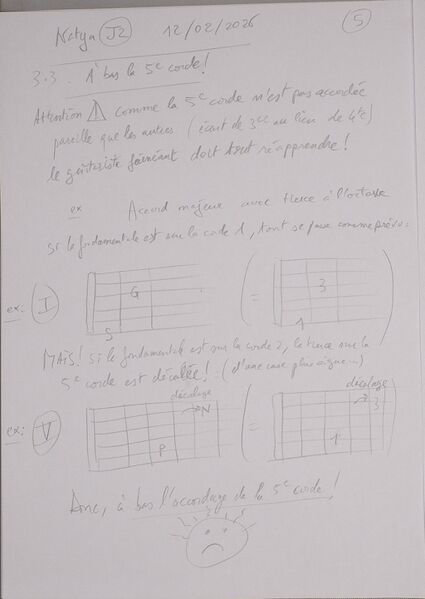 Natya J2 12/02/2026 5
3.3. A bas la 5e corde !
Attention ⚠ comme la 5e corde n'est pas accordée
pareille que les autres (écart de 3ce au lieu de 4te)
le guitariste fainéant doit tout réapprendre !
ex Accord majeur avec tierce à l'octave
si la fondamentale est sur la corde 1, tout se passe comme prévu :
ex: I G S ( = 3 1 )
MAIS ! si la fondamentale est sur la corde 2, la tierce sur la
5e corde est décalée ! (d'une case plus aiguë)
ex: V décalage N P ( = décalage 3 1 )
Donc, à bas l'accordage de la 5e corde !